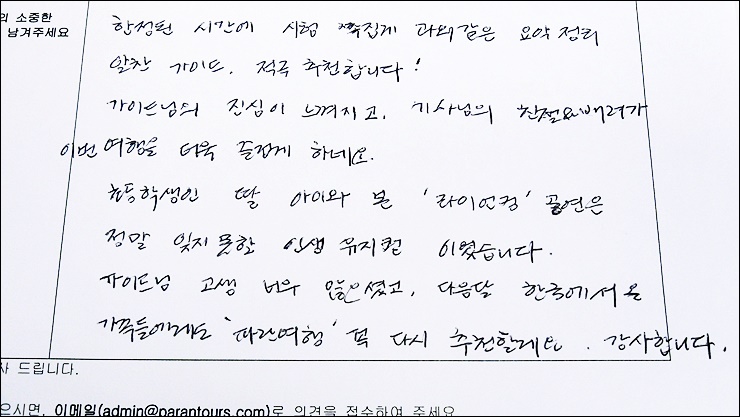 의 소중한
남겨주세요
한정된 시간에 시험 쪽집게 과외같은 요약정리
알찬 가이드, 적극 추천합니다!
가이드님의 진심이 느껴지고, 기사님의 친절&배려가
이번 여행을 더욱 즐겁게 하네요.
초등학생인 딸 아이와 본 '라이언킹' 공연은
정말 잊지못할 인생 뮤지컬 이였습니다.
가이드님 고생 너무 많으셨고, 다음달 한국에서 온
가족들에게도 '파란여행' 꼭 다시 추천할게요. 감사합니다.
사 드립니다.
으시면, 이메일(admin@parantours.com)로 의견을 접수하여 주세요